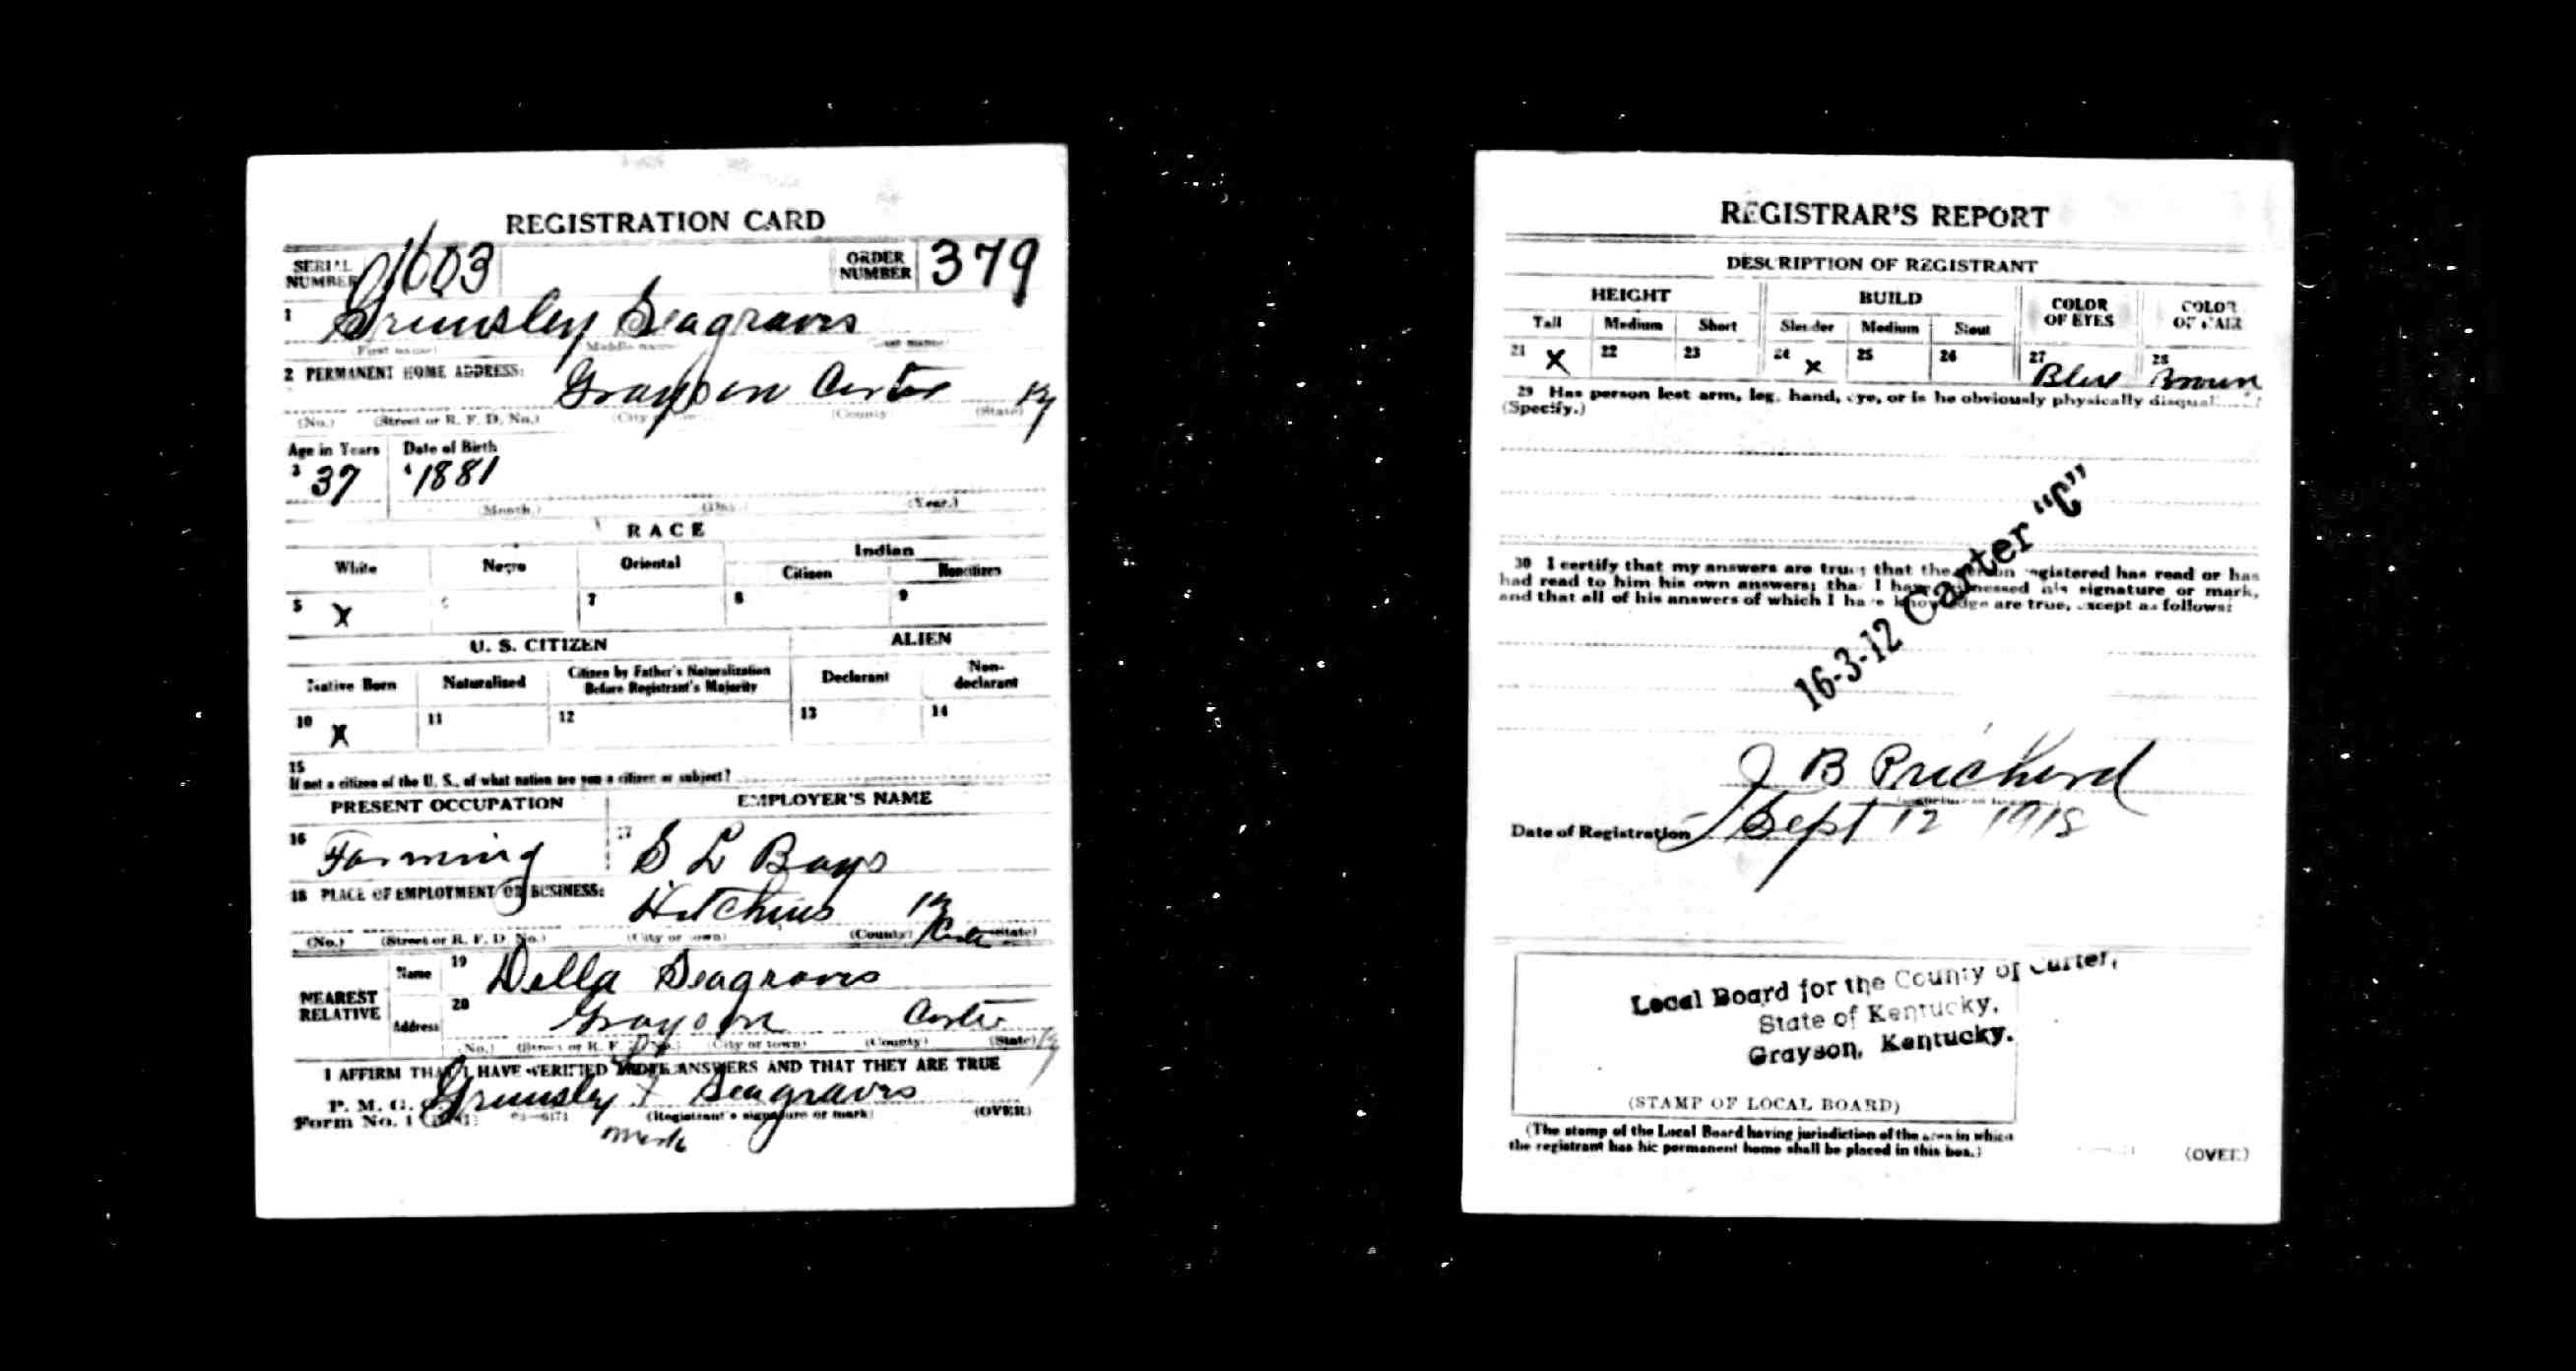 REGISTRATION CARD
SERIAL NUMBER 1603 ORDER NUMBER 379
1 Grimsley Seagraves
(First name) Middle name (Last name)
2 PERMANENT HOME ADDRESS: Grayson Carter Ky
(No.) (Street or R. F. D. No.) (City (County) (State)
Age in Years Date of Birth
3 37 4 1881
(Month.) (Day.) (Year.)
RACE
White Negro Oriental Indian
Citizen Noncitizen
5 X 6 7 8 9
U. S. CITIZEN ALIEN
Native Born Naturalized Citizen by Father's Naturalization Before Registrant's Majority Declarant Non-declarant
10 X 11 12 13 14
15
If not a citizen of the U. S., of what nation are you a citizen or subject?
PRESENT OCCUPATION EMPLOYER'S NAME
16 Farming 17 S L Bays
18 PLACE OF EMPLOYMENT OR BUSINESS:
Hitchins Ky
(No.) (Street or R. F. D. No.) (City or town) (County) Carter (State)
NEAREST RELATIVE Name 19 Della Seagraves
Address 20 Grayson Carter
(No.) (Street or R. F. D. No.) (City or town) (County) (State) Ky
I AFFIRM THAT I HAVE VERIFIED ABOVE ANSWERS AND THAT THEY ARE TRUE
P. M. G. O. Grimsley X Seagraves
Form No. 1 (Registrant's signature or mark) (OVER)
mark
REGISTRAR'S REPORT
DESCRIPTION OF REGISTRANT
HEIGHT BUILD COLOR OF EYES COLOR OF HAIR
Tall Medium Short Slender Medium Stout
21 X 22 23 24 X 25 26 27 Blue 28 Brown
29 Has person lost arm, leg, hand, eye, or is he obviously physically disqual
(Specify.)
30 I certify that my answers are true; that the person registered has read or has
had read to him his own answers; that I have witnessed his signature or mark,
and that all of his answers of which I have knowledge are true, except as follows:
16-3-12 Carter "C"
J B Prichard
Date of Registration Sept 12 1918
Local Board for the County of Carter,
State of Kentucky,
Grayson, Kentucky.
(STAMP OF LOCAL BOARD)
(The stamp of the Local Board having jurisdiction of the area in which
the registrant has his permanent home shall be placed in this box.)
(OVER)